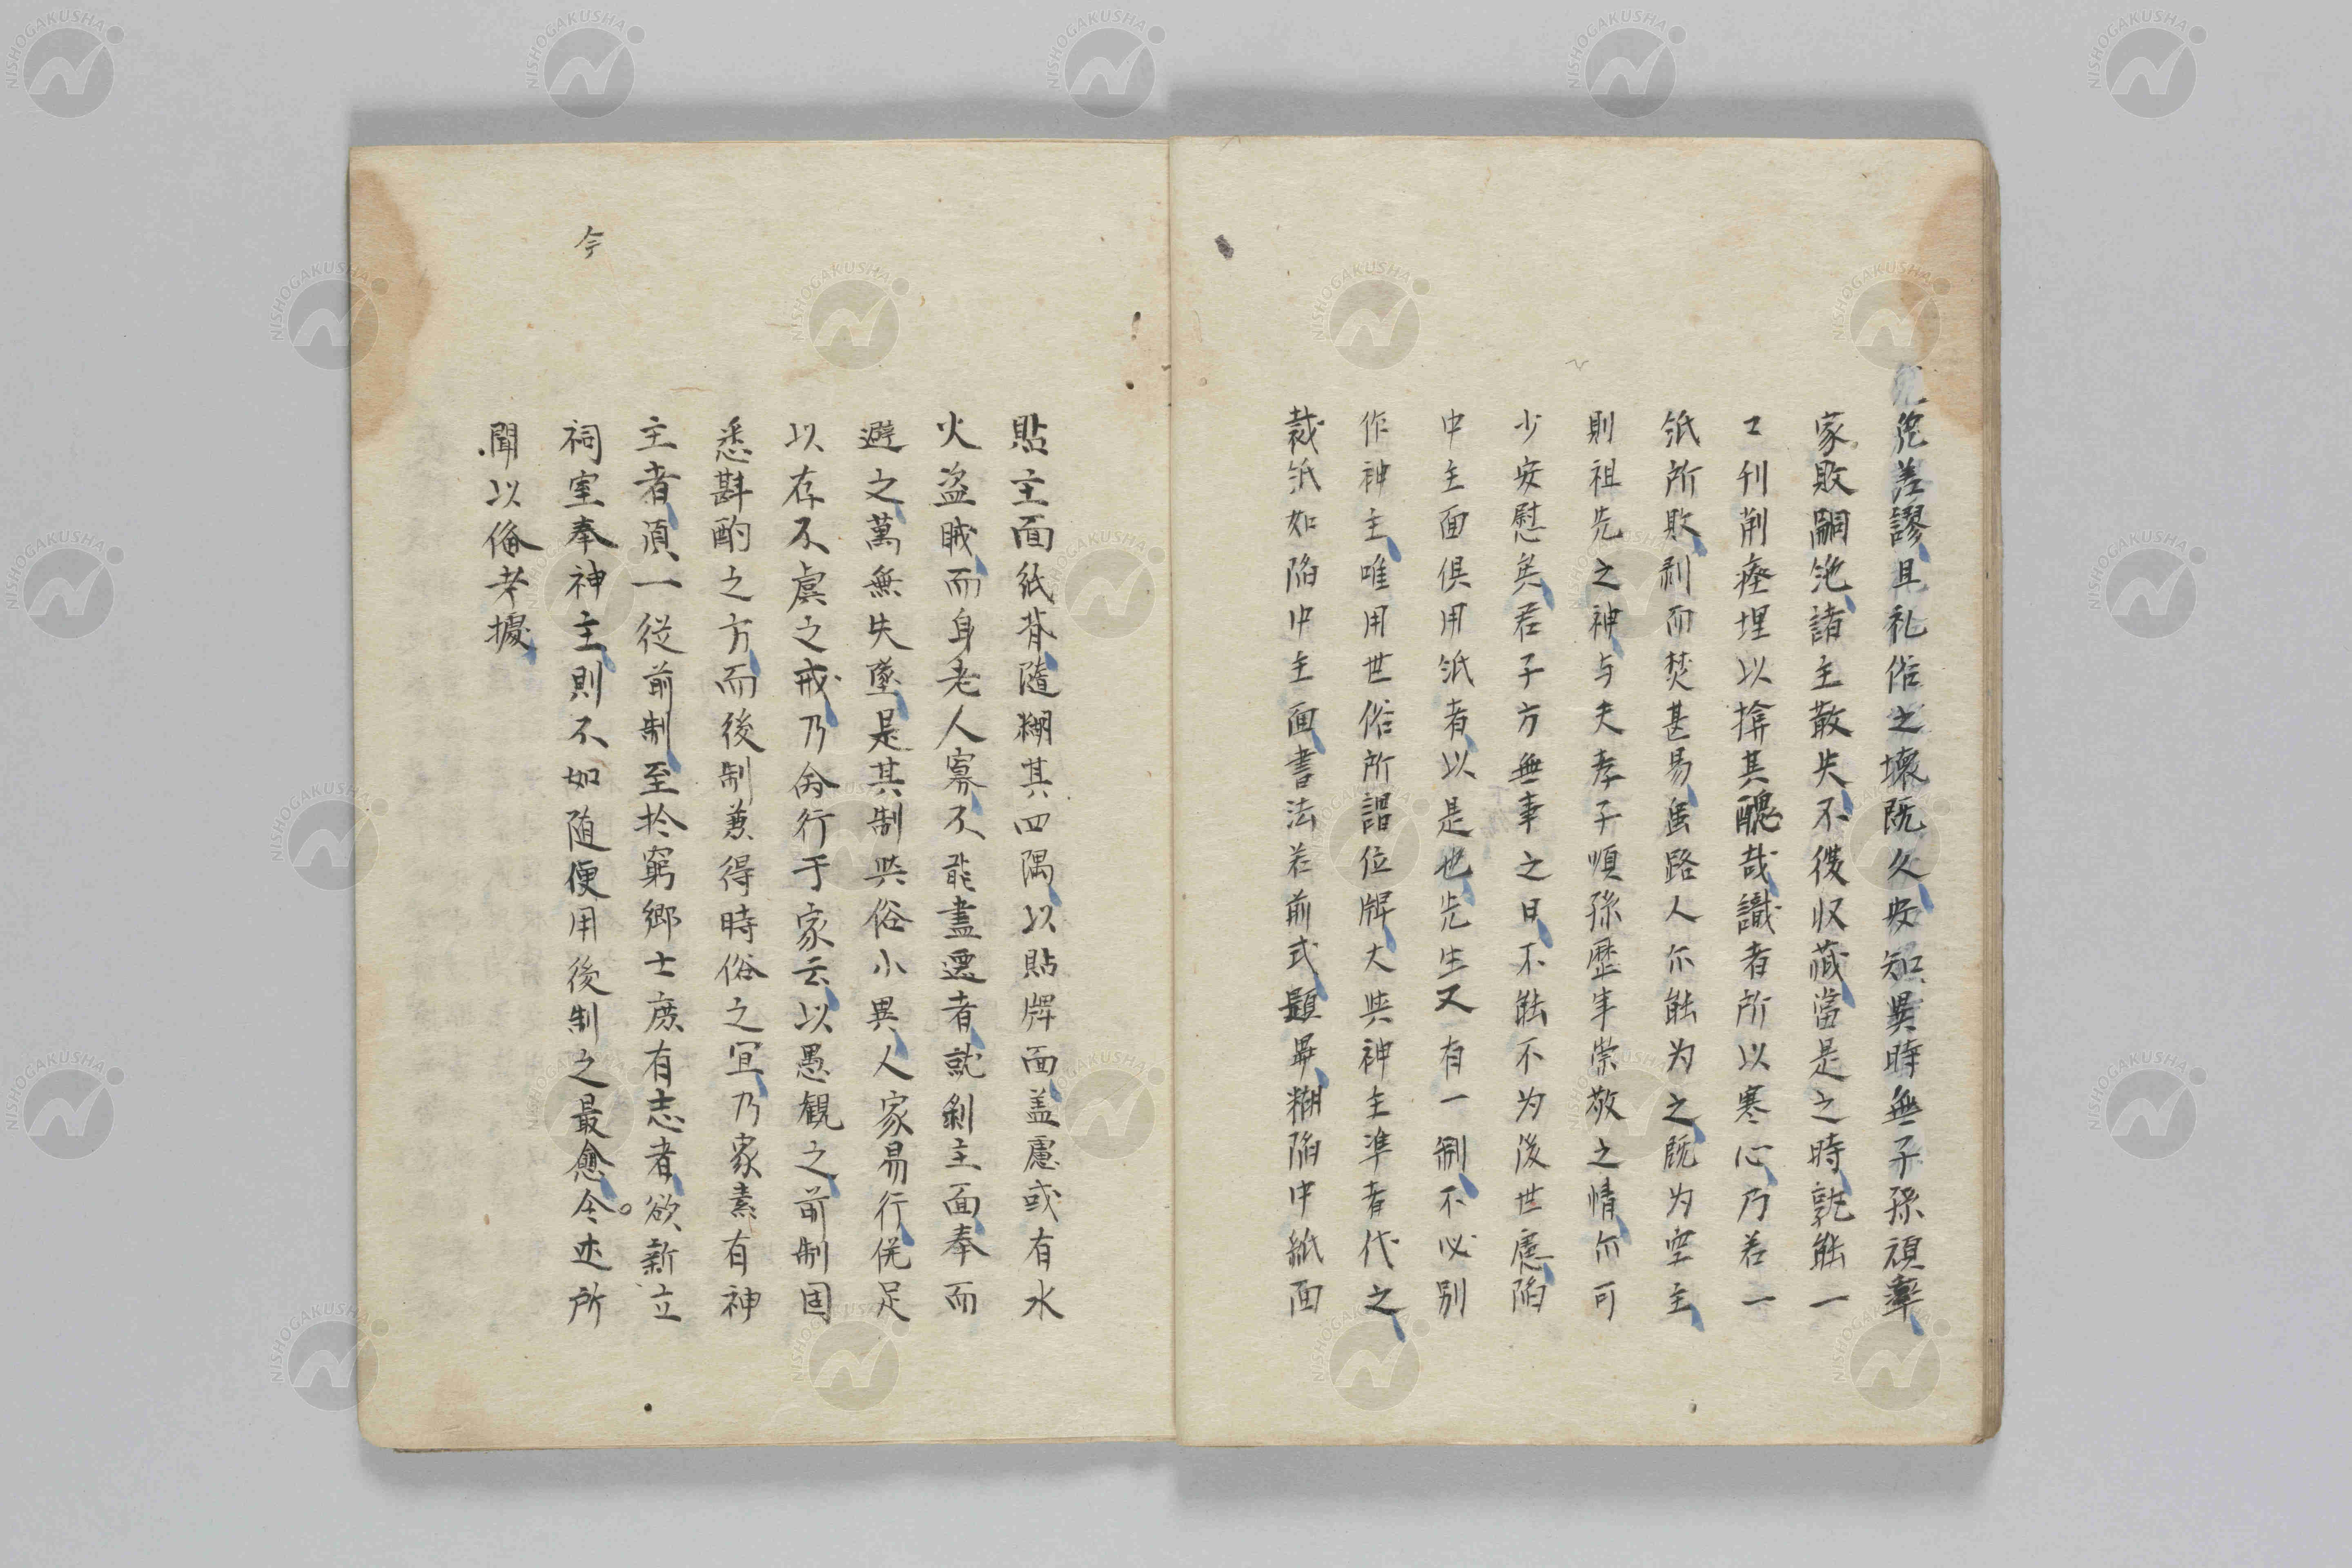 免差謬、且礼俗之壞既久、安知異時無子孫頑輩、
家敗嗣絶、諸主散失、不復収藏、當是之時、孰能一
工刊削瘞埋以揜其醜哉、識者所以寒心、乃若一
紙所敗、剥而焚甚易、雖路人尓能为之、既为空主、
則祖先之神、与夫孝子順孫歴年崇敬之情、尓可
少安慰矣、君子方無事之日、不能不为後世慮、陥
中主面倶用紙者、以是也、先生又有一制、不必别
作神主、唯用世俗所謂位牌、大与神主準者代之、
裁紙如陥中主面、書法若前式、題畢、糊陥中紙面
貼主面紙背、随糊其四隅、以貼牌面、盖慮或有水
火盗賊、而身老人寡、不能盡遷者、就剝主面、奉而
避之、萬無失墜、是其制与俗小異、人家易行、俻足
以存不虞之戒、乃令行于家云、以愚観之、前制固
悉斟酌之方、而後制兼得時俗之宜、乃家素有神
主者、須一従前制、至於窮郷士庶有志者、欲新立
祠室奉神主、則不如随便用後制之最愈、今述所
聞以俻考據、
今
NISHOGAKUSHA